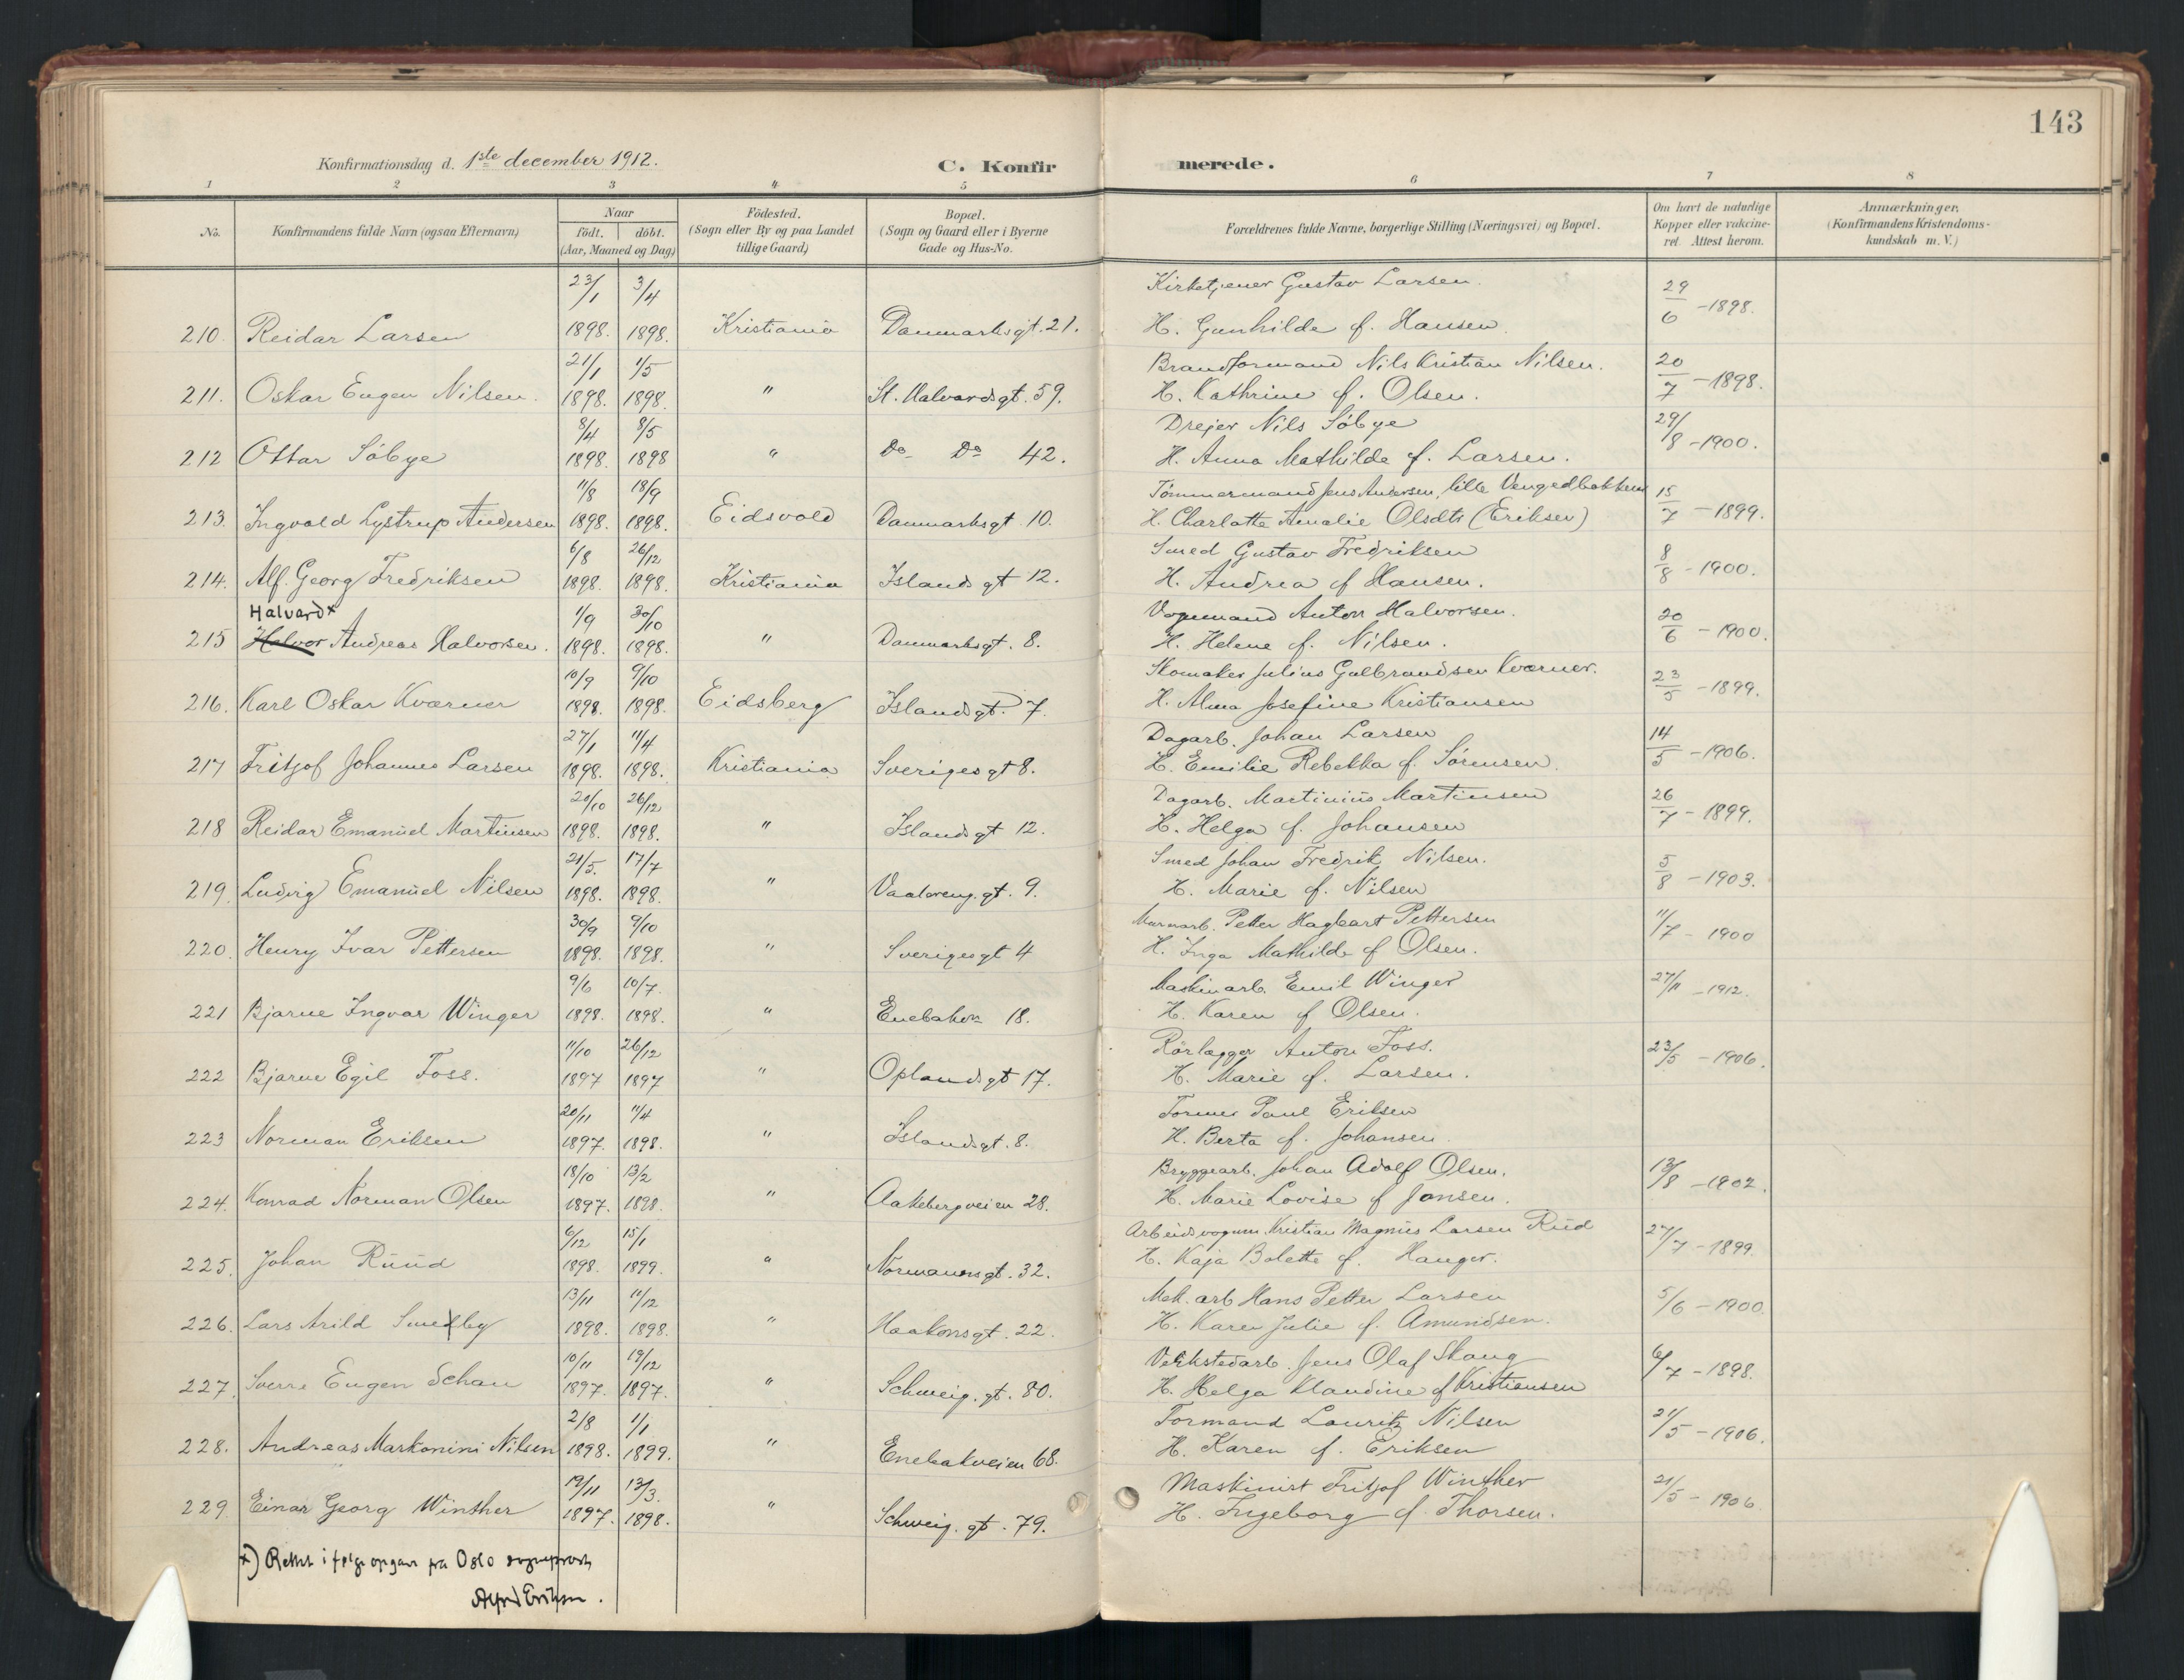 143
Konfirmationsdag d. 1ste december 1912.
C. Konfirmerede.
1 2 3 4 5 6 7 8
No. Konfirmandens fulde Navn (ogsaa Efternavn) Naar födt. döbt. (Aar, Maaned og Dag) Födested. (Sogn eller By og paa Landet tillige Gaard) Bopæl. (Sogn og Gaard eller i Byerne Gade og Hus-No. Forældrenes fulde Navne, borgerlige Stilling (Næringsvei) og Bopæl. Om havt de naturlige Kopper eller vakcineret. Attest herom. Anmærkninger. (Konfirmandens Kristendomskundskab m. V.)
23/1 3/4 Kirketjener Gustav Larsen. 29/6 - 1898.
210. Reidar Larsen 1898. 1898. Kristiania Danmarksgt. 21. H. Gunhilde f. Hansen.
21/1 1/5 Brandformand Nils Kristian Nilsen. 20/7 - 1898.
211. Oskar Eugen Nilsen. 1898. 1898. " St. Halvardsgt. 59. H. Kathrine f. Olsen.
8/4 8/5 Drejer Nils Söbye 29/8 - 1900.
212 Ottar Söbye 1898. 1898 " Do Do 42. H. Anna Mathilde f. Larsen.
11/8 18/9 Tömmermand Jens Andersen, lille Vengedbakken 15/7 - 1899.
213. Ingvald Lystrup Andersen 1898. 1898. Eidsvold Danmarksgt 10. H. Charlotte Amalie Olsdtr (Eriksen)
6/8 26/12 Smed Gustav Fredriksen 8/8 - 1900.
214. Alf. Georg Fredriksen 1898. 1898. Kristiania Islandsgt 12. H. Andrea f Hansen.
Halvard x 1/9 30/10 Vognmand Anton Halvorsen. 20/6 - 1900.
215 Halvor Andreas Halvorsen. 1898. 1898. " Danmarksgt. 8. H. Helene f. Nilsen.
10/9 9/10 Skomaker Julius Gulbrandsen Kværner. 23/5 - 1899.
216. Karl Oskar Kværner 1898. 1898. Eidsberg Islandsgt. 7. H. Alma Josefine Kristiansen
27/1 11/4 Dagarb. Johan Larsen 14/5 - 1906.
217 Fritjof Johannes Larsen 1898. 1898. Kristiania Sverigesgt 8. H. Emilie Rebekka f. Sörensen.
20/10 26/12 Dagarb. Martinius Martinsen 26/7 - 1899.
218 Reidar Emanuel Martinsen 1898. 1898. " Islandsgt 12. H. Helga f. Johansen
21/5. 17/7 Smed Johan Fredrik Nilsen. 5/8 - 1903.
219. Ludvig Emanuel Nilsen 1898. 1898. " Vaalereng. gt. 9. H. Marie f. Nilsen
30/9 9/10 Murarb. Petter Hagbart Pettersen 11/7 - 1900
220. Henry Ivar Pettersen 1898. 1898. " Sverigesgt 4 H. Inga Mathilde f Olsen.
9/6 10/7. Maskinarb. Emil Winger 27/11 - 1912.
221 Bjarne Ingvar Winger 1898. 1898. " Enebakvn 18. H. Karen f Olsen.
11/10 26/12 Rörlægger Anton Foss. 23/5 - 1906.
222 Bjarne Egil Foss. 1897 1897 " Oplandsgt 17. H. Marie f. Larsen.
20/11 11/4 Former Paul Eriksen
223 Norman Eriksen 1897. 1898. " Islandsgt. 8. H. Berta f. Johansen.
18/10 13/2 Bryggearb. Johan Adolf Olsen. 13/8 - 1902.
224. Konrad Norman Olsen 1897. 1898. " Aakebergveien 28. H. Marie Lovise f Jansen.
6/12 15/1 Arbeidsvognm. Kristian Magnus Larsen Rud 27/7 - 1899.
225. Johan Ruud 1898. 1899. " Normannsgt. 32. H. Kaja Bolette f. Hanger.
13/11 11/12 Mek. arb Hans Petter Larsen 5/6 - 1900.
226. Lars Arild Smedby 1898. 1898. " Haakonsgt. 22. H. Karen Julie f. Amundsen.
10/11 19/12 Verkstedarb. Jens Olaf Skaug 6/7 - 1898.
227. Sverre Eugen Schau 1897. 1897. " Schweig. gt. 80. H. Helga Klaudine f Kristiansen
2/8 1/1 Formand Lauritz Nilsen 21/5 - 1906.
228. Andreas Markonini Nilsen 1898. 1899. " Enebakveien 68. H. Karen f. Eriksen
19/11 13/3. Maskinist Fritjof Winther 21/5 - 1906
229 Einar Georg Winther 1897. 1898. " Schweig. gt. 79. H. Ingeborg f. Thorsen.
x) Rettet i følge opgave fra Oslo sogneprest
Alfred Eriksen.